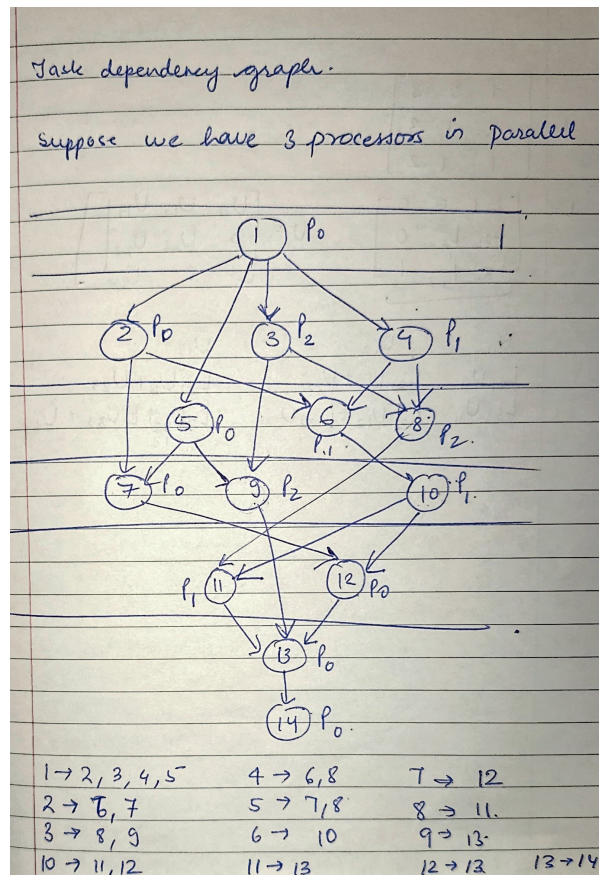 Task dependency graph.
Suppose we have 3 processors in parallel
1 P0 1
2 P0 3 P2 4 P1
5 P0 6 P1 8 P2
7 P0 9 P2 10 P1
P1 11 12 P0
13 P0
14 P0
1 → 2, 3, 4, 5 4 → 6, 8 7 → 12
2 → 6, 7 5 → 7, 8 8 → 11.
3 → 8, 9 6 → 10 9 → 13.
10 → 11, 12 11 → 13 12 → 13 13 → 14